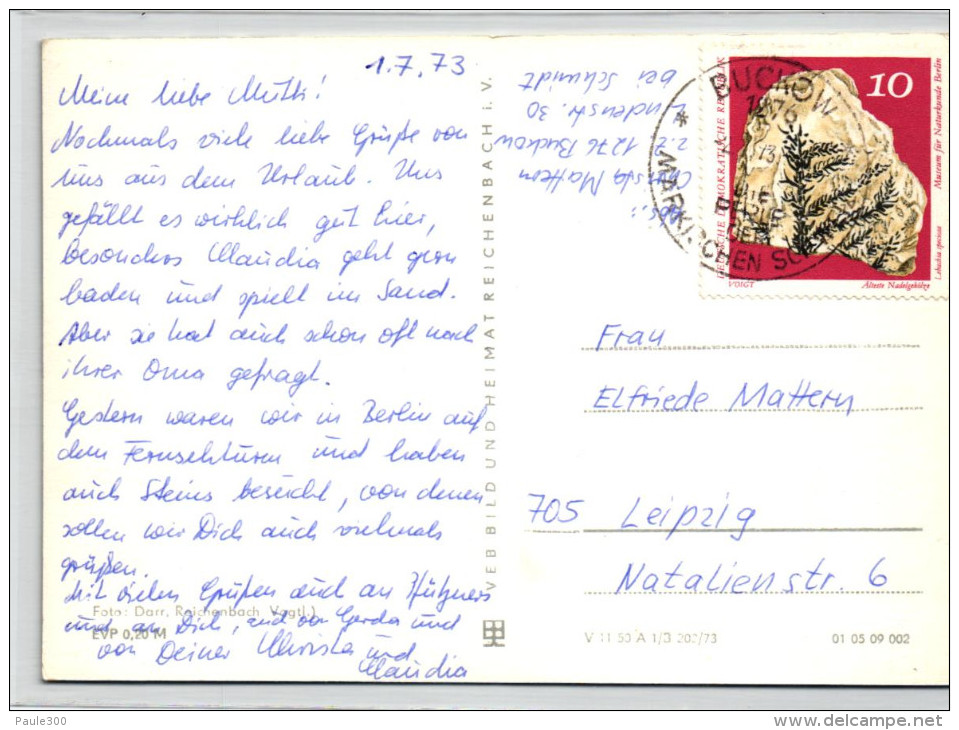 1.7.73
Meine liebe Mutti!
Nochmals viele liebe Grüße von
uns aus dem Urlaub. Uns
gefällt es wirklich gut hier,
besonders Claudia geht gern
baden und spielt im Sand.
Aber sie hat auch schon oft nach
ihrer Oma gefragt.
Gestern waren wir in Berlin auf
dem Fernsehturm und haben
auch Steins besucht, von denen
sollen wir Dich auch vielmals
grüßen.
Mit vielen Grüßen auch an
und an Dich, auch von Gerda und
von Deiner Christa und
Claudia
Foto: Darr, Reichenbach (Vogtl.)
EVP 0,20 M
VEB BILD UND HEIMAT REICHENBACH i. V.
Abs.:
Christa Mattern
z.Z. 1276 Buckow
Lindenstr. 30
bei Schmidt
BUCKOW
MÄRKISCHEN
10
DEUTSCHE DEMOKRATISCHE REPUBLIK
Museum für Naturkunde Berlin
Lebachia speciosa
VOIGT
Älteste Nadelgehölze
Frau
Elfriede Mattern
705 Leipzig
Natalienstr. 6
V 11 50 A 1/B 202/73
01 05 09 002
Paule300
www.delcampe.net